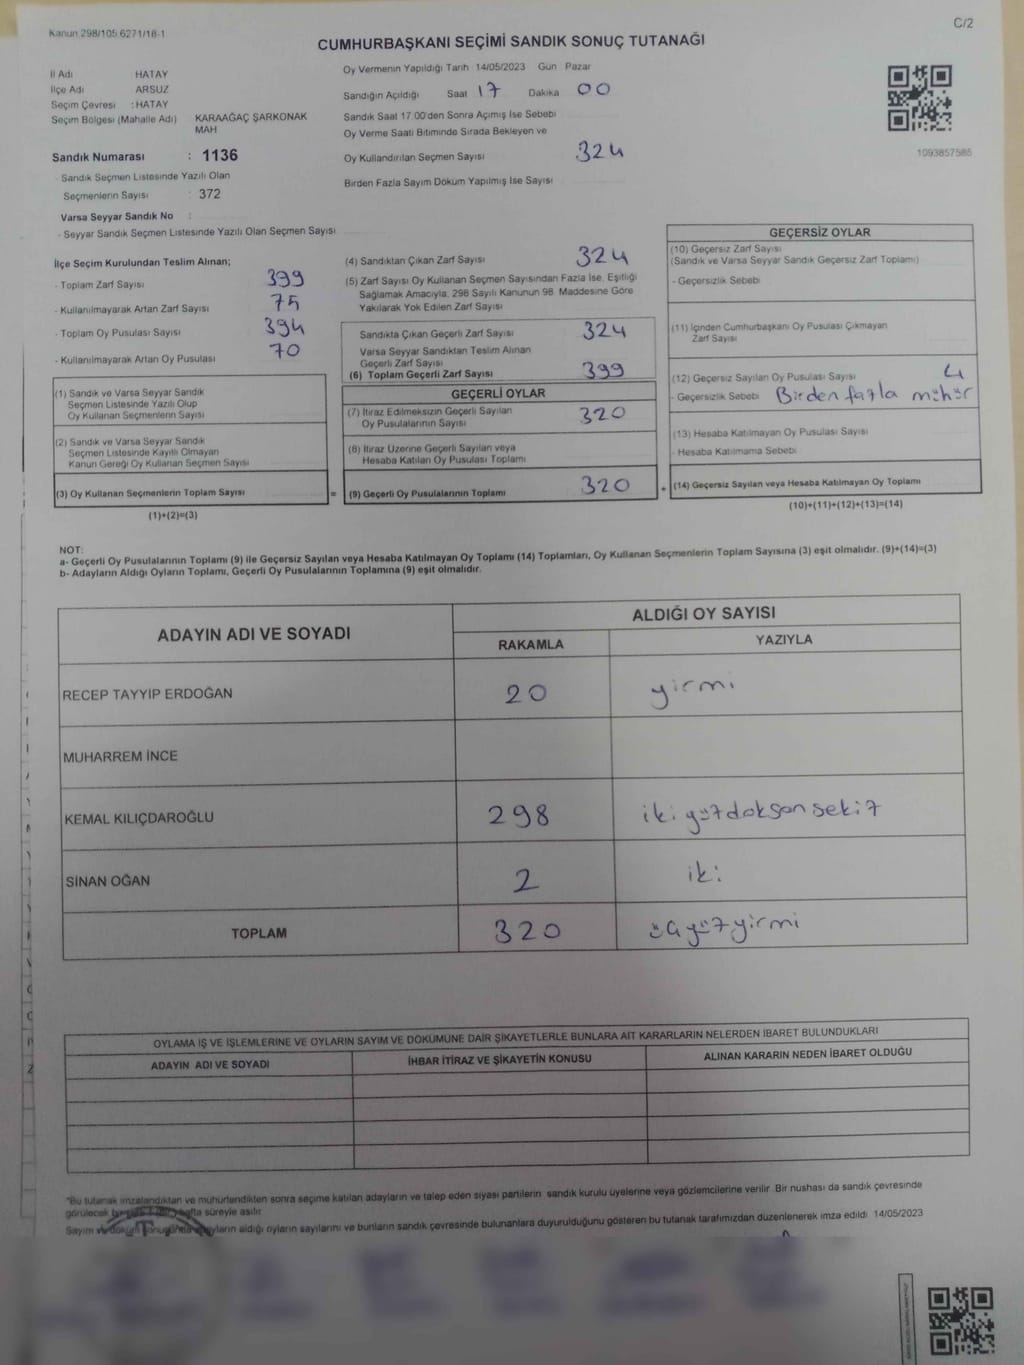 Kanun 298/105 6271/18-1
C/2
CUMHURBAŞKANI SEÇİMİ SANDIK SONUÇ TUTANAĞI
İl Adı HATAY
İlçe Adı ARSUZ
Seçim Çevresi : HATAY
Seçim Bölgesi (Mahalle Adı) KARAAĞAÇ ŞARKONAK MAH
Sandık Numarası : 1136
- Sandık Seçmen Listesinde Yazılı Olan
Seçmenlerin Sayısı : 372
Varsa Seyyar Sandık No :
- Seyyar Sandık Seçmen Listesinde Yazılı Olan Seçmen Sayısı
Oy Vermenin Yapıldığı Tarih 14/05/2023 Gün Pazar
Sandığın Açıldığı Saat 17 Dakika 00
Sandık Saat 17 00'den Sonra Açımış İse Sebebi
Oy Verme Saati Bitiminde Sırada Bekleyen ve
Oy Kullandırılan Seçmen Sayısı 324
Birden Fazla Sayım Döküm Yapılmış İse Sayısı
1093857585
İlçe Seçim Kurulundan Teslim Alınan;
- Toplam Zarf Sayısı 399
- Kullanılmayarak Artan Zarf Sayısı 75
- Toplam Oy Pusulası Sayısı 394
- Kullanılmayarak Artan Oy Pusulası 70
(1) Sandık ve Varsa Seyyar Sandık
Seçmen Listesinde Yazılı Olup
Oy Kullanan Seçmenlerin Sayısı
(2) Sandık ve Varsa Seyyar Sandık
Seçmen Listesinde Kayıtlı Olmayan
Kanun Gereği Oy Kullanan Seçmen Sayısı
(3) Oy Kullanan Seçmenlerin Toplam Sayısı =
(1)+(2)=(3)
(4) Sandıktan Çıkan Zarf Sayısı 324
(5) Zarf Sayısı Oy Kullanan Seçmen Sayısından Fazla İse, Eşitliği
Sağlamak Amacıyla, 298 Sayılı Kanunun 98. Maddesine Göre
Yakılarak Yok Edilen Zarf Sayısı
Sandıkta Çıkan Geçerli Zarf Sayısı 324
Varsa Seyyar Sandıktan Teslim Alınan
Geçerli Zarf Sayısı
(6) Toplam Geçerli Zarf Sayısı 399
GEÇERLİ OYLAR
(7) İtiraz Edilmeksizin Geçerli Sayılan
Oy Pusulalarının Sayısı 320
(8) İtiraz Üzerine Geçerli Sayılan veya
Hesaba Katılan Oy Pusulası Toplamı
(9) Geçerli Oy Pusulalarının Toplamı 320 +
GEÇERSİZ OYLAR
(10) Geçersiz Zarf Sayısı
(Sandık ve Varsa Seyyar Sandık Geçersiz Zarf Toplamı)
- Geçersizlik Sebebi
(11) İçinden Cumhurbaşkanı Oy Pusulası Çıkmayan
Zarf Sayısı
(12) Geçersiz Sayılan Oy Pusulası Sayısı 4
- Geçersizlik Sebebi Birden fazla mühür
(13) Hesaba Katılmayan Oy Pusulası Sayısı
- Hesaba Katılmama Sebebi
(14) Geçersiz Sayılan veya Hesaba Katılmayan Oy Toplamı
(10)+(11)+(12)+(13)=(14)
NOT:
a- Geçerli Oy Pusulalarının Toplamı (9) ile Geçersiz Sayılan veya Hesaba Katılmayan Oy Toplamı (14) Toplamları, Oy Kullanan Seçmenlerin Toplam Sayısına (3) eşit olmalıdır. (9)+(14)=(3)
b- Adayların Aldığı Oyların Toplamı, Geçerli Oy Pusulalarının Toplamına (9) eşit olmalıdır.
ADAYIN ADI VE SOYADI ALDIĞI OY SAYISI
RAKAMLA YAZIYLA
RECEP TAYYIP ERDOĞAN 20 yirmi
MUHARREM İNCE
KEMAL KILIÇDAROĞLU 298 iki yüzdoksansekiz
SİNAN OĞAN 2 iki
TOPLAM 320 üçyüzyirmi
OYLAMA İŞ VE İŞLEMLERİNE VE OYLARIN SAYIM VE DÖKÜMÜNE DAİR ŞİKAYETLERLE BUNLARA AİT KARARLARIN NELERDEN İBARET BULUNDUKLARI
ADAYIN ADI VE SOYADI İHBAR İTİRAZ VE ŞİKAYETİN KONUSU ALINAN KARARIN NEDEN İBARET OLDUĞU
"Bu tutanak imzalandıktan ve mühürlendikten sonra seçime katılan adayların ve talep eden siyasi partilerin sandık kurulu üyelerine veya gözlemcilerine verilir. Bir nüshası da sandık çevresinde
görülecek bir hafta süreyle asılır.
Sayım ve döküm oyların aldığı oyların sayılarını ve bunların sandık çevresinde bulunanlara duyurulduğunu gösteren bu tutanak tarafımızdan düzenlenerek imza edildi 14/05/2023